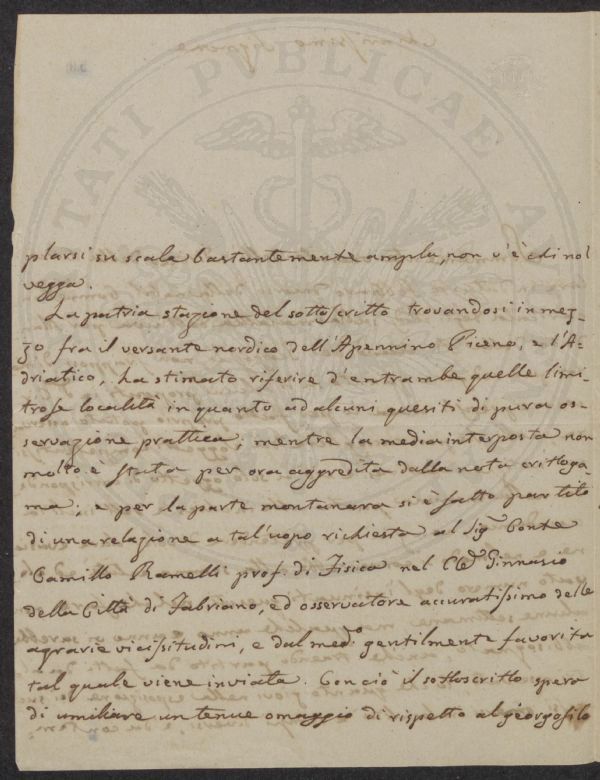 plarsi su scala bastantemente ampla, non v'è chi nol
vegga.
La patria stazione del sottoscritto trovandosi in mez-
zo fra il versante nordico dell'Apennino Piceno, e l'A-
driatico, ha stimato riferire d'entrambe quelle limi-
trofe località in quanto ad alcuni quesiti di pura os-
servazione prattica; mentre la media interposta non
molto è stata per ora aggredita dalla nota crittoga-
ma; e per la parte montanara si è fatto partito
di una relazione a tal'uopo richiesta al Sig.r Conte
Camillo Ramelli prof. di Fisica nel Ginnasio
della Città di Fabriano, ed osservatore accuratissimo delle
agrarie vicissitudini, e dal med.o gentilmente favorita
tal quale viene inviata. Con ciò il sottoscritto spera
di umiliare un tenue omaggio di rispetto al georgofilo
TATI PVBLICAE